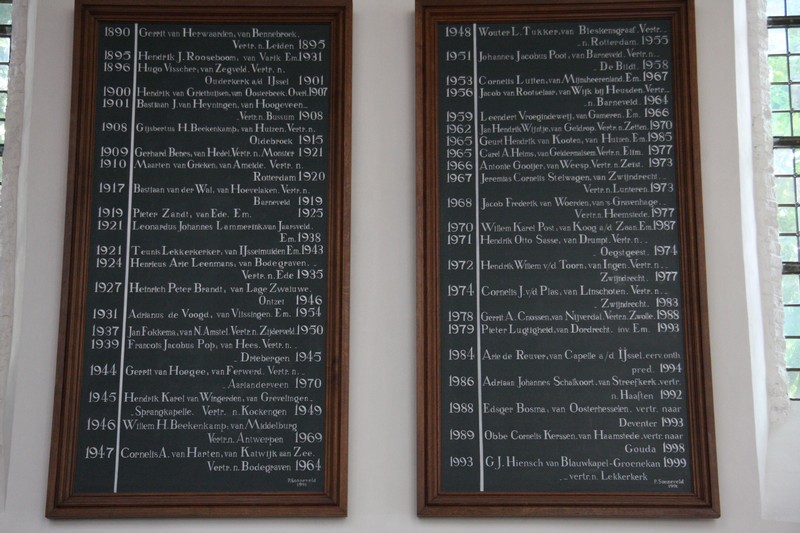 1890 Gerrit van Herwaarden, van Bennebroek,
Vertr. n. Leiden 1895
1895 Hendrik J. Rooseboom, van Varik Em. 1931
1896 Hugo Visscher, van Zegveld. Vertr. n.
Ouderkerk a/d IJssel 1901
1900 Hendrik van Griethuijsen, van Oosterbeek. Overl. 1907
1901 Bastiaan J. van Heyningen, van Hoogeveen
Vertr. n. Bussum 1908
1908 Gijsbertus H. Beekenkamp, van Huizen. Vertr. n.
Oldebroek 1915
1909 Gerhard Benes, van Hedel. Vertr. n. Monster 1921
1910 Maarten van Grieken, van Ameide. Vertr. n.
Rotterdam 1920
1917 Bastiaan van der Wal, van Hoevelaken. Vertr. n.
Barneveld 1919
1919 Pieter Zandt, van Ede. Em. 1925
1921 Leonardus Johannes Lammerink, van Jaarsveld
Em. 1938
1921 Teunis Lekkerkerker, van IJsselmuiden Em. 1943
1924 Henricus Arie Leenmans, van Bodegraven
Vertr. n. Ede 1935
1927 Heinrich Peter Brandt, van Lage Zwaluwe.
Ontzet 1946
1931 Adrianus de Voogd, van Vlissingen. Em. 1954
1937 Jan Fokkema, van N. Amstel. Vertr. n. Zijderveld. 1950
1939 François Jacobus Pop, van Hees. Vertr. n.
Driebergen 1945
1944 Gerrit van Hoegee, van Ferwerd. Vertr. n.
Aarlanderveen 1970
1945 Hendrik Karel van Wingerden, van Grevelingen
Sprangkapelle. Vertr. n. Kockengen 1949
1946 Willem H. Beekenkamp, van Middelburg
Vertr. n. Antwerpen 1969
1947 Cornelis A. van Harten, van Katwijk aan Zee.
Vertr. n. Bodegraven 1964
1948 Wouter L. Tukker, van Bleskensgraaf. Vertr.
n. Rotterdam. 1955
1951 Johannes Jacobus Poot, van Barneveld. Vertr. n.
De Bildt. 1958
1953 Cornelis Luiten, van Mijnsheerenland. Em. 1967
1956 Jacob van Rootselaar, van Wijk bij Heusden. Vertr.
n. Barneveld. 1964
1959 Leendert Vroegindeweij, van Gameren. Em. 1966
1962 Jan Hendrik Wijntje, van Geldrop. Vertr. n. Zetten. 1970
1965 Geurt Hendrik van Kooten, van Huizen. Em. 1985
1965 Carel A. Heins, van Geldermalsen. Vertr. n. Elim. 1977
1966 Antonie Gooijer, van Weesp. Vertr. n. Zeist. 1973
1967 Jeremias Cornelis Stelwagen, van Zwijndrecht.
Vertr. n. Lunteren. 1973
1968 Jacob Frederik van Woerden, van 's Gravenhage
Vertr. n. Heemstede. 1977
1970 Willem Karel Post, van Koog a/d Zaan. Em. 1987
1971 Hendrik Otto Sasse, van Drumpt. Vertr. n.
Oegstgeest. 1974
1972 Hendrik Willem v/d Toorn, van Ingen. Vertr. n.
Zwijndrecht. 1977
1974 Cornelis J. v/d Plas, van Linschoten. Vertr. n.
Zwijndrecht. 1983
1978 Gerrit A. Cnossen, van Nijverdal. Vertr. n. Zwolle. 1988
1979 Pieter Lugtigheid, van Dordrecht. inv. Em. 1993
1984 Arie de Reuver, van Capelle a/d IJssel. eerv. onth
pred. 1994
1986 Adriaan Johannes Schalkoort, van Streefkerk. vertr.
n. Haaften 1992
1988 Edsger Bosma, van Oosterhesselen. vertr. naar
Deventer 1993
1989 Obbe Cornelis Kerssen, van Haamstede. vertr. naar
Gouda 1998
1993 G.J. Hiensch van Blauwkapel-Groenekan 1999
vertr. n. Lekkerkerk